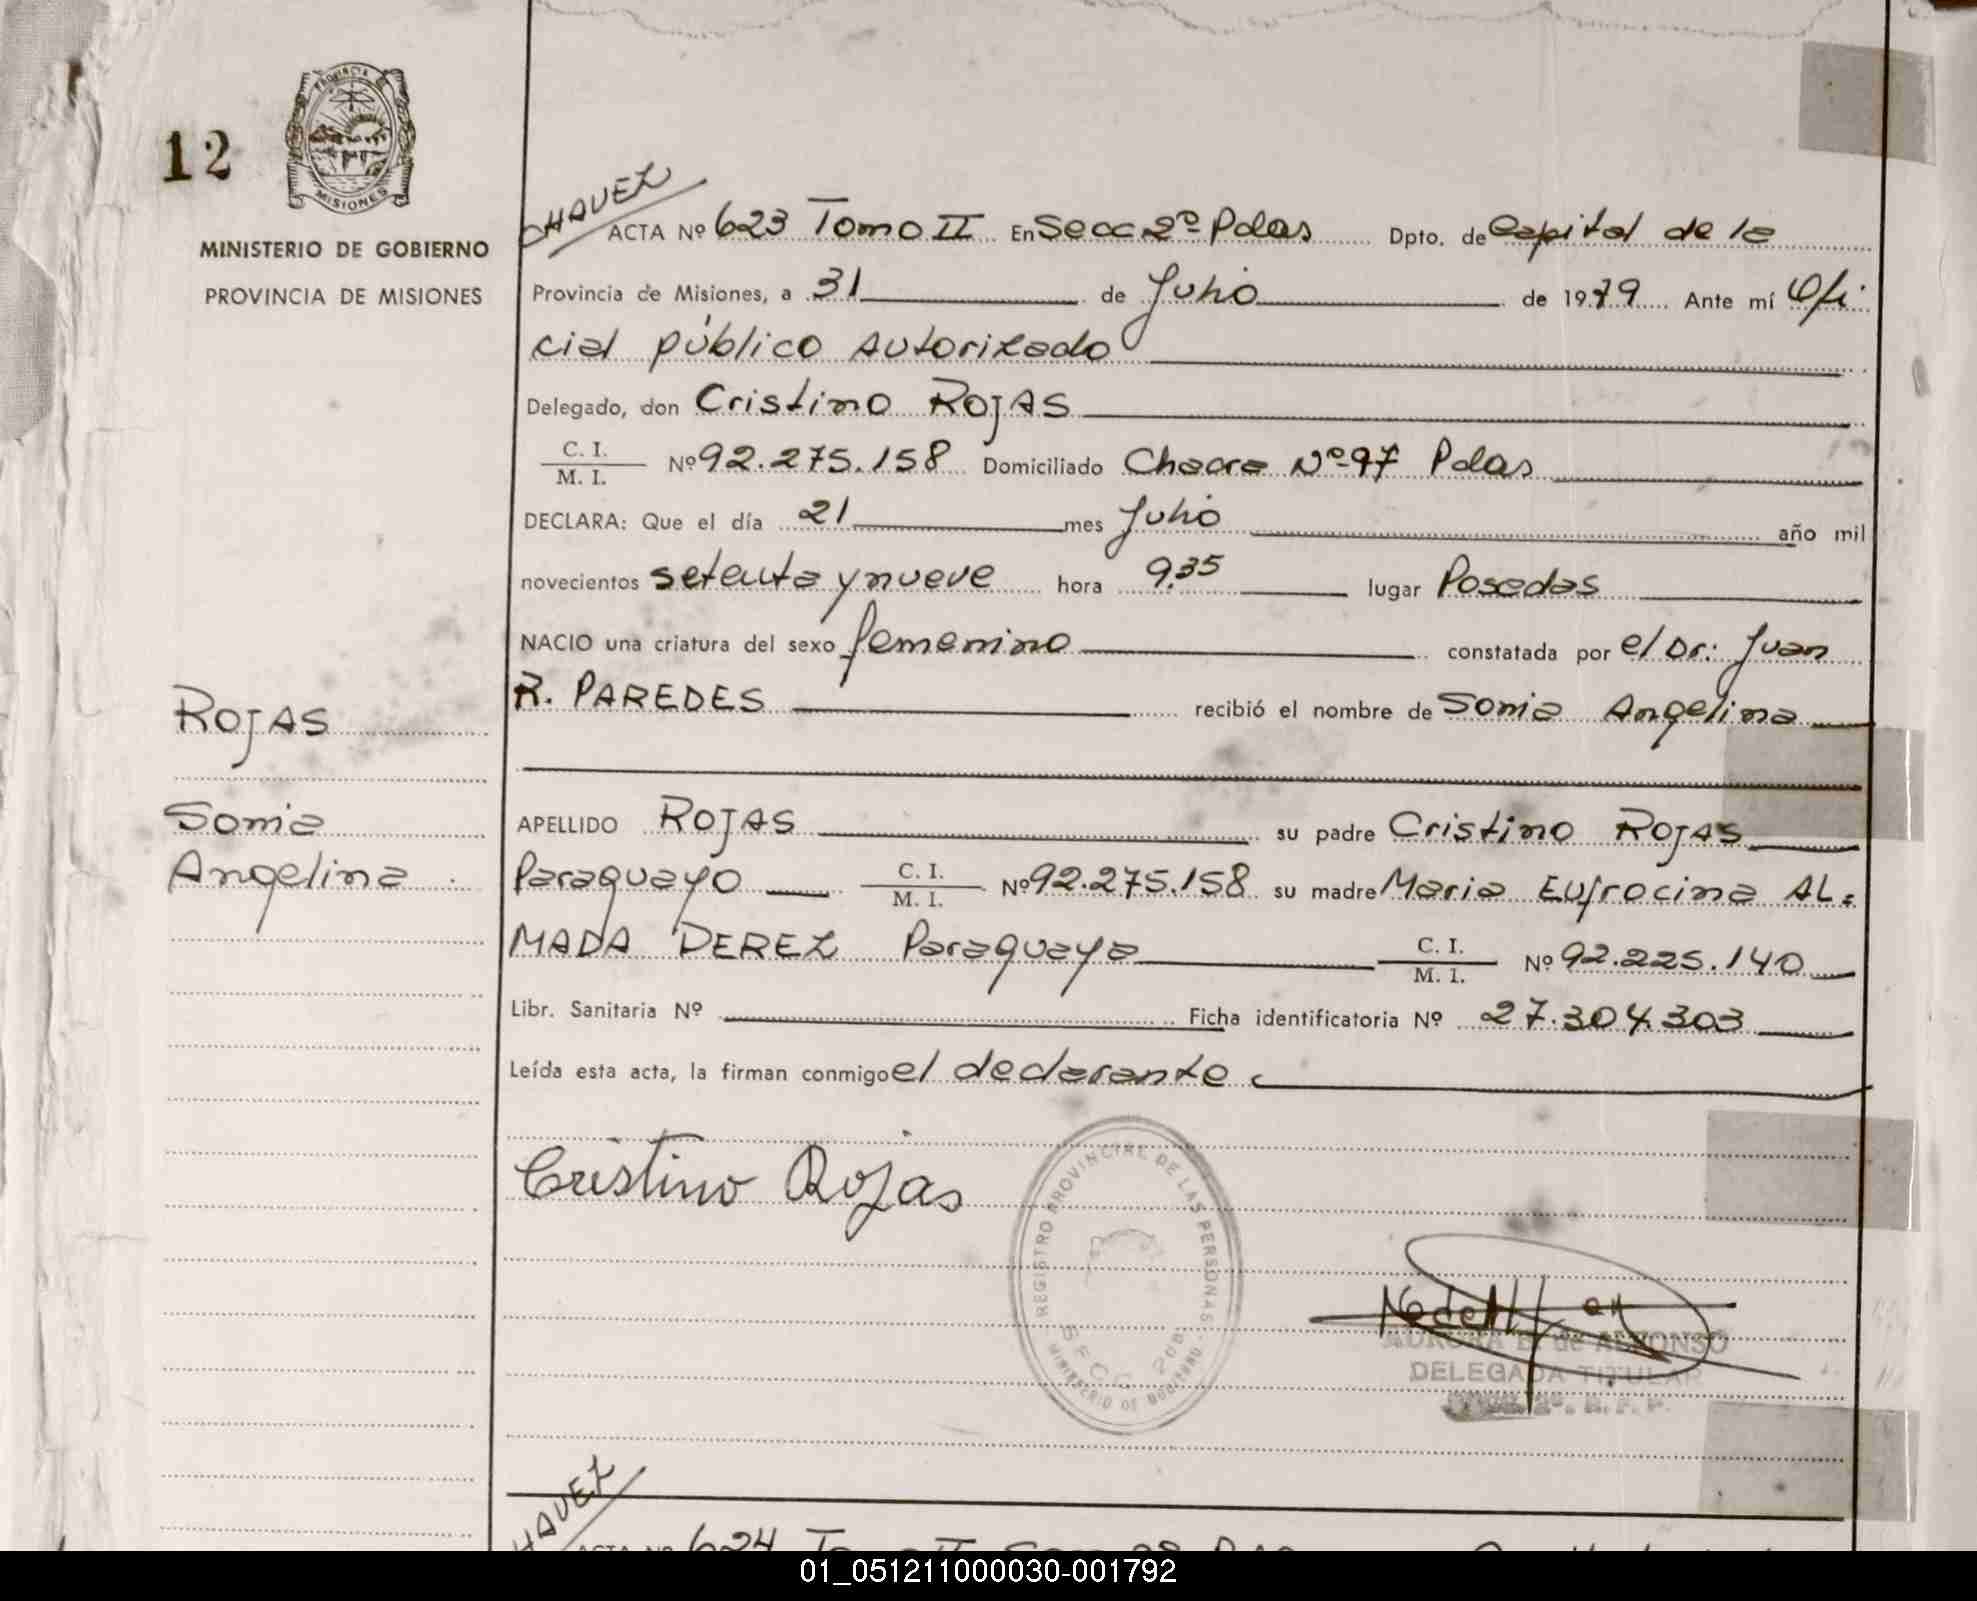 12
PROVINCIA
MISIONES
MINISTERIO DE GOBIERNO
PROVINCIA DE MISIONES
CHAVEZ
ACTA Nº 623 Tomo II En Secc 2º Pdas Dpto. de Capital de la
Provincia de Misiones, a 31 de Julio de 1979 Ante mí Ofi
cial público Autorizado
Delegado, don Cristino ROJAS
C. I.
M. I. Nº 92.275.158 Domiciliado Chacra Nº 97 Pdas
DECLARA: Que el día 21 mes Julio año mil
novecientos setenta y nueve hora 9.35 lugar Posadas
NACIO una criatura del sexo femenino constatada por el Dr: Juan
R. PAREDES recibió el nombre de Sonia Angelina
ROJAS
Sonia
Angelina
APELLIDO ROJAS su padre Cristino ROJAS
Paraguayo C. I. M. I. Nº 92.275.158 su madre Maria Eufrocina AL=
MADA PEREZ Paraguaya C. I. M. I. Nº 92.225.140
Libr. Sanitaria Nº Ficha identificatoria Nº 27.304.303
Leída esta acta, la firman conmigo el declarante
Cristino Rojas
REGISTRO PROVINCIAL DE LAS PERSONAS
SECC
MINISTERIO DE GOBIERNO
AURORA de ALFONSO
DELEGADA TITULAR
CHAVEZ
ACTA Nº 624 Tomo II
01_051211000030-001792